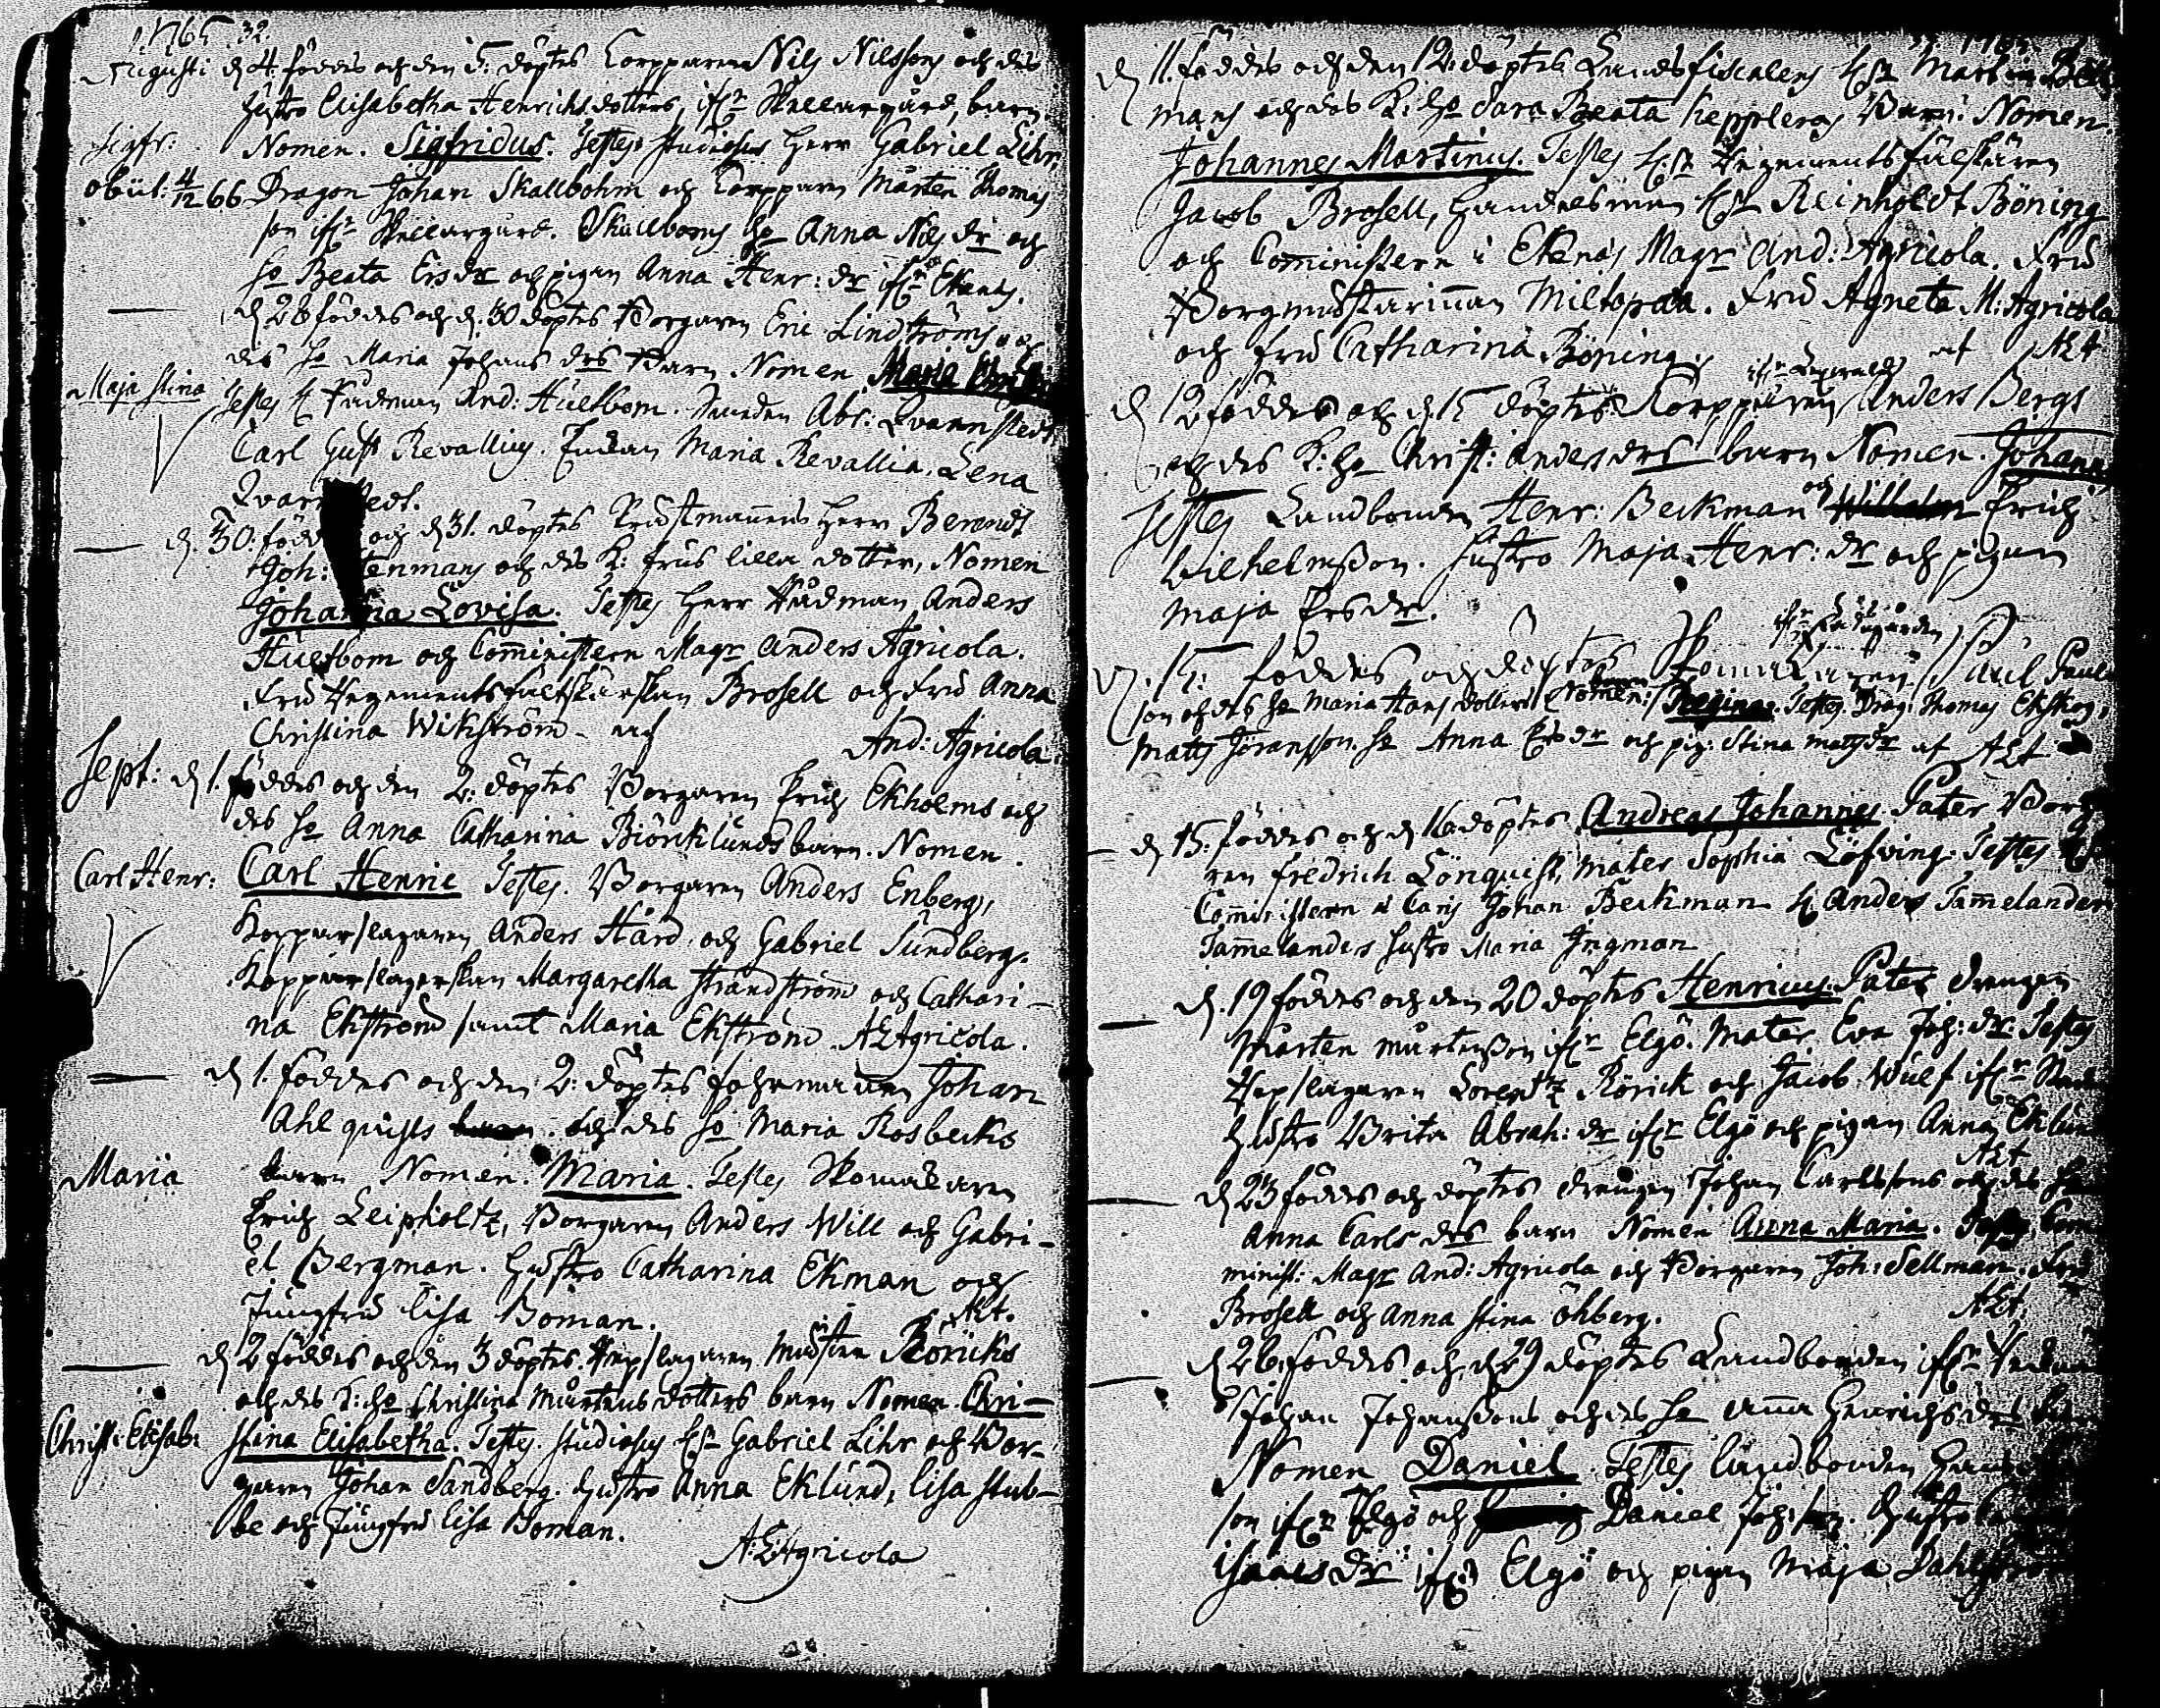 1765. 32.
Augusti d 4. föddes och den 5. döptes Torpparen Nils Nilssons och des
hustro Elisabetha Henrichsdotters, ifrn barn.
Sigfr: Nomen. Sigfridus. Testes Studiosus Herr Gabriel Lihr,
obiit. 4/12 66 Dragon Johan Skallbohm och Torpparen Mårten Thomas
son ifrn Skallboms ho Anna Nils dr och
ho Beata Ersdr och pigan Anna Henr: dr ifrn Ekenäs.
d 28 föddes och d. 30 döptes Borgaren Eric Lindströms och
des ho Maria Johans drs Barn Nomen Maria
Maja Stina Testes H Rådman And: Hultbom. Abr: Qvarnstedt
Carl Gust Revallius. Maria Revallia. Lena
d. 30. född och d 31. döptes Krustmannens Herr Berendt
Joh: enmans och des K: frus lilla dotter, Nomen
Johanna Lovisa. Testes Herr Rådman Anders
Hultbom och Comministern Magr Anders Agricola.
Fru Regementsfältskärskan Brosell och Fru Anna
Christina Wikström. af And: Agricola.
Sept: d 1. föddes och den 2. döptes Borgaren Erich Ekholms och
des ho Anna Catharina Biörcklunds barn. Nomen.
Carl Henr: Carl Henric Testes. Borgaren Anders Enberg,
Kopparslagaren Anders Hård och Gabriel Sundberg.
Kopparslagerskan Margaretha Strandström och Cathari-
na Ekström samt Maria Ekström. AEAgricola.
d 1. föddes och den 2. döptes Johan
Ahlquists och des ho Maria Rosbecks
Maria barn Nomen. Maria. Testes Skomakaren
Erich Leipholtz, Borgaren Anders Will och Gabri-
el Bergman. Hustro Catharina Ekman och
Jungfru Lisa Boman. AEt.
d 2 föddes och den 3 döptes. Repslagaren Mäster Röricks
och des K: ho Christina Mårtens dotters barn Nomen. Chri-
Christ: Elisab: stina Elisabetha. Testes. Studiosus Hr Gabriel Lihr och Bor-
garen Johan Sandberg. Hustro Anna Eklund, Lisa Stub-
be och Jungfru Lisa Boman.
AEAgricola
d 11. föddes och den 12. döptes Landsfiscalens Hr Martin
mans och des K: ho Sara Beata Kepplers Barn. Nomen.
Johannes Martinus. Testes Hr Regementsfältskären
Jacob Brosell, Handelsman Hr Reinholdt Böning
och Comministern i Ekenäs Magr And: Agricola. Fru
Borgmästarinnan Miltopæa. Fru Agneta M: Agricola
och Fru Catharina Böning. af AEA
d 12 föddes och d. 15 döptes Torpparen Anders Bergs
och des K: ho Christ: Anders drs barn Nomen. Johann
Testes Landbonden Henr: Beckman och Erich
Wilhelmsson. Hustro Maja Henr: dr och pigan
Maja Ersdr.
d. 15. föddes och döptes Skomakaren Paul Pauls
son och des ho Maria Hans dotters barn Nomen: Regina. Testes. Drag: Thomas Ekskog,
Matts Jöransson. ho Anna Ersdr och pig: Stina Mattsdr af AEA
d 15. föddes och d 16 döptes Andreas Johannes. Pater Borga
ren Fredrich Lönquist, Mater Sophia Löfving. Testes
Comministern i Caris Johan Beckman H Anders Tammelander
Tammelanders hustro Maria Ingman
d. 19 föddes och den 20 döptes Henricus. Pater Drengen
Mårten Mårtensson ifrn Elgö. Mater Eva Joh: dr. Testes
Repslagaren Lorentz Rörick och Jacob Wulf ifrn
Hustro Brita Abrah: dr ifrn Elgö och pigan Anna Eklun
AEA
d 23 föddes och döptes Drengen Johan Carlssons och des ho
Anna Carls drs barn Nomen Anna Maria. Testes Com
minist: Magr And: Agricola och Borgaren Joh: Sellman. Fru
Brosell och Anna Stina Öhberg. AEA
d 26 föddes och d 29 döptes Landbonden ifrn
Johan Johanssons och des ho Anna Henrichs drs barn
Nomen Daniel Testes Landbonden
son ifrn Elgö och Daniel Joh:son. Hustro
Isaacs dr ifrn Elgö och pigan Maja Dahlström